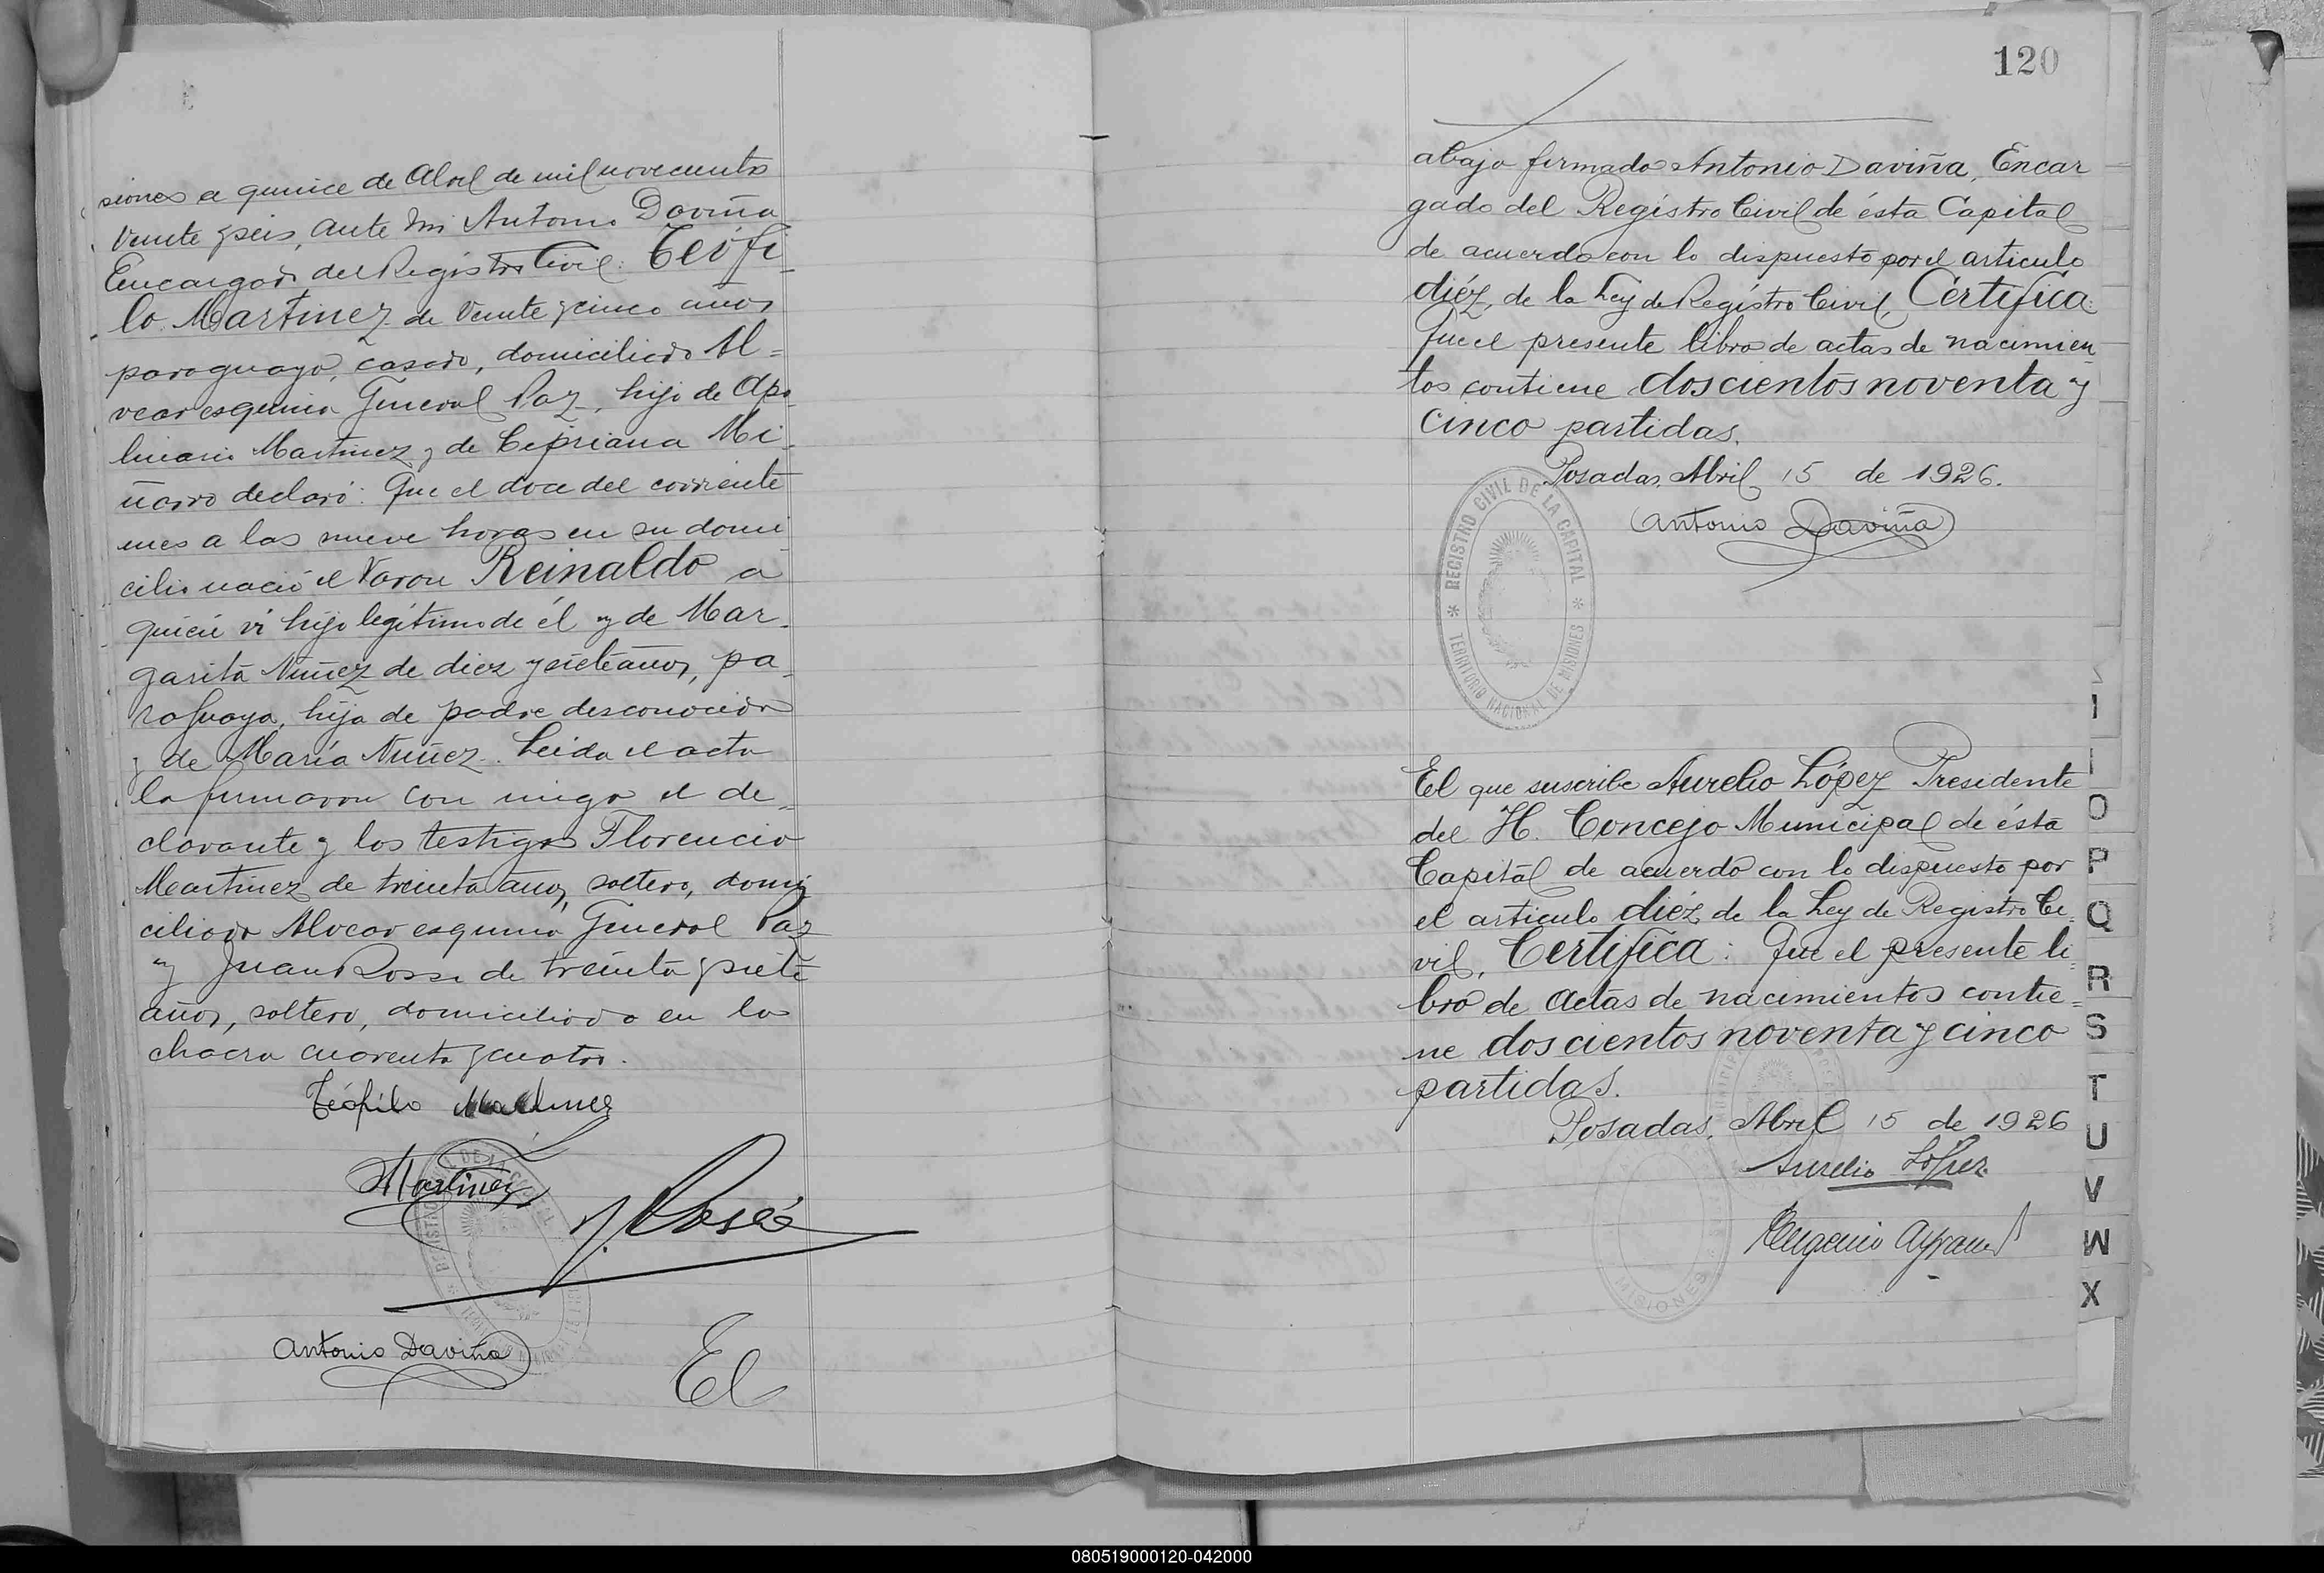 siones a quince de Abril de mil novecientos
veinte y seis, ante mi Antonio Daviña
Encargado del Registro Civil: Teófi
lo Martinez de veinte y cinco años
paraguayo, casado, domiciliado Al=
vear esquina General Paz, hijo de Apo
linario Martinez y de Cipriana Mi
ñarro declaró: Que el doce del corriente
mes a las nueve horas en su domi
cilio nació el varon Reinaldo a
quien vi hijo legítimo de él y de Mar
garita Nuñez de diez y siete años, pa
raguaya, hija de padre desconocido
y de María Nuñez. Leida el acta
la firmaron con migo el de
clarante y los testigos Florencio
Martinez de treinta años, soltero, domi
ciliado Alvear esquina General Paz
y Juan Rossi de treinta y siete
años, soltero, domiciliado en la
chacra cuarenta y cuatro.
Teófilo Martinez
Martinez
Antonio Daviña
El
120
abajo firmado Antonio Daviña, Encar
gado del Registro Civil de ésta Capital
de acuerdo con lo dispuesto por el articulo
diéz, de la Ley de Registro Civil, Certifica:
Que el presente libro de actas de nacimien
tos contiene doscientos noventa y
cinco partidas.
Posadas, Abril 15 de 1926.
Antonio Daviña
REGISTRO CIVIL DE LA CAPITAL
TERRITORIO NACIONAL DE MISIONES
El que suscribe Aurelio López Presidente
del H. Concejo Municipal de ésta
Capital de acuerdo con lo dispuesto por
el articulo diéz de la Ley de Registro Ci
vil, Certifica: Que el presente li
bro de actas de nacimientos contie=
ne doscientos noventa y cinco
partidas.
Posadas, Abril 15 de 1926
Aurelio López
Eugenio
MISIONES
I
O
P
Q
R
S
T
U
V
W
X
080519000120-042000